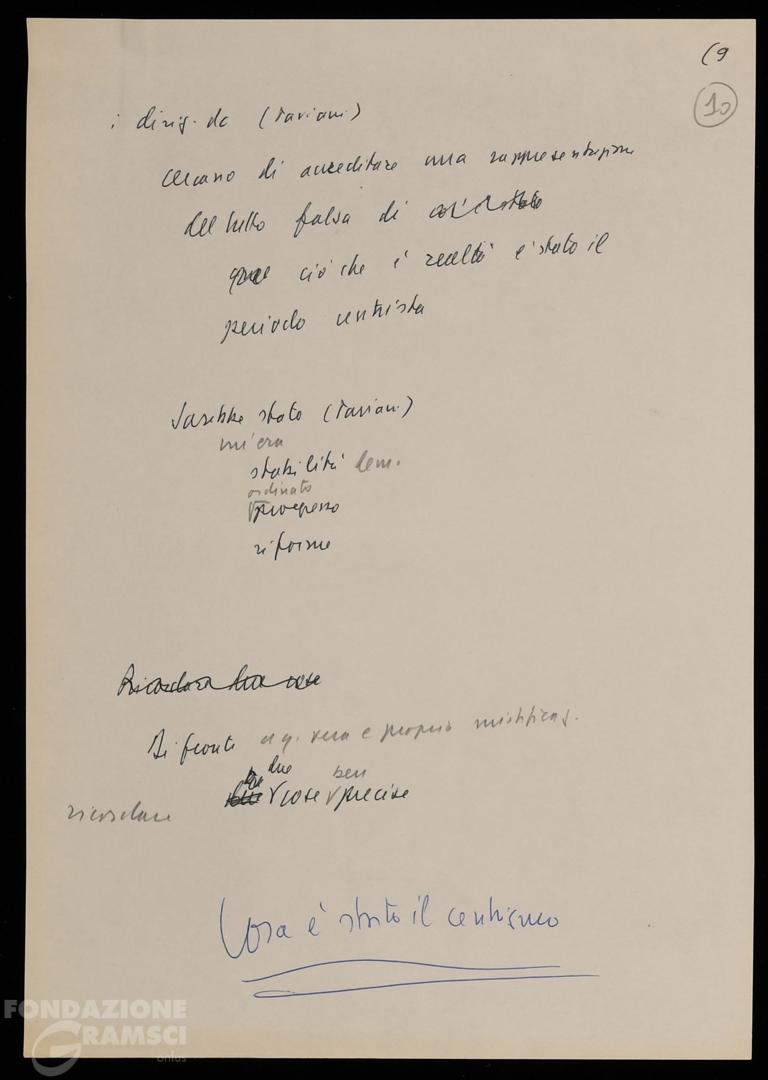 (9
10
i dirig. dc (Taviani)
cercano di accreditare una rappresentazione
del tutto falsa di
ciò che è realtà è stato il
periodo centrista
Sarebbe stato (Taviani)
un'era
stabilità dem.
ordinato
progresso
riforme
Ricordare due cose
Di fronte a q. vera e propria mistificaz.
due ben
cose precise
ricordare
Cosa è stato il centrismo
FONDAZIONE
GRAMSCI
onlus